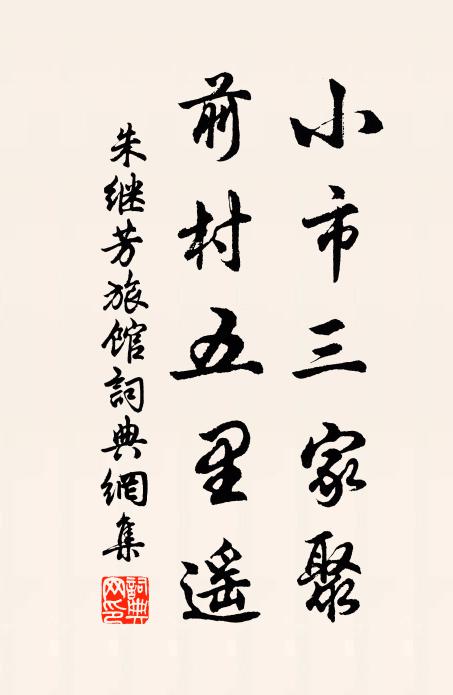 小市三家聚
前村五里遥
朱继芳旅馆詞典網集
詞典網印